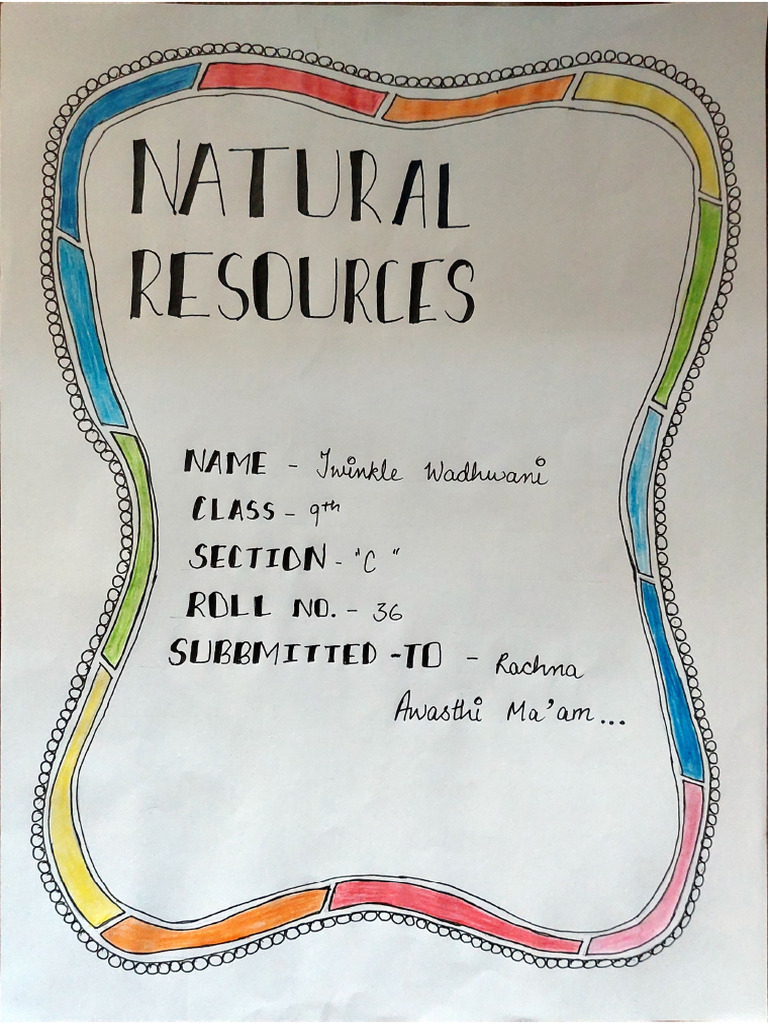 NATURAL
RESOURCES
NAME - Twinkle Wadhwani
CLASS - 9th
SECTION - "C"
ROLL NO. - 36
SUBBMITTED -TO - Rachna
Awasthi Ma'am...